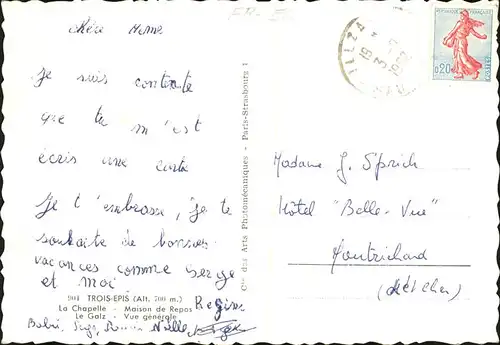 chère Mome
Je suis contente
que tu m'est
écris une carte
Je t'embrasse, je te
souhaite de bonnes
vacances comme serge
et moi
Regine
901 TROIS-EPIS (Alt. 700 m.)
La Chapelle - Maison de Repos
Le Galz - Vue générale
Cie des Arts Photomécaniques - Paris-Strasbourg
REPUBLIQUE FRANÇAISE
0,20
POSTES
Madame J. Sprich
Hôtel "Belle-Vue"
Montrichard
(Loir et Cher)